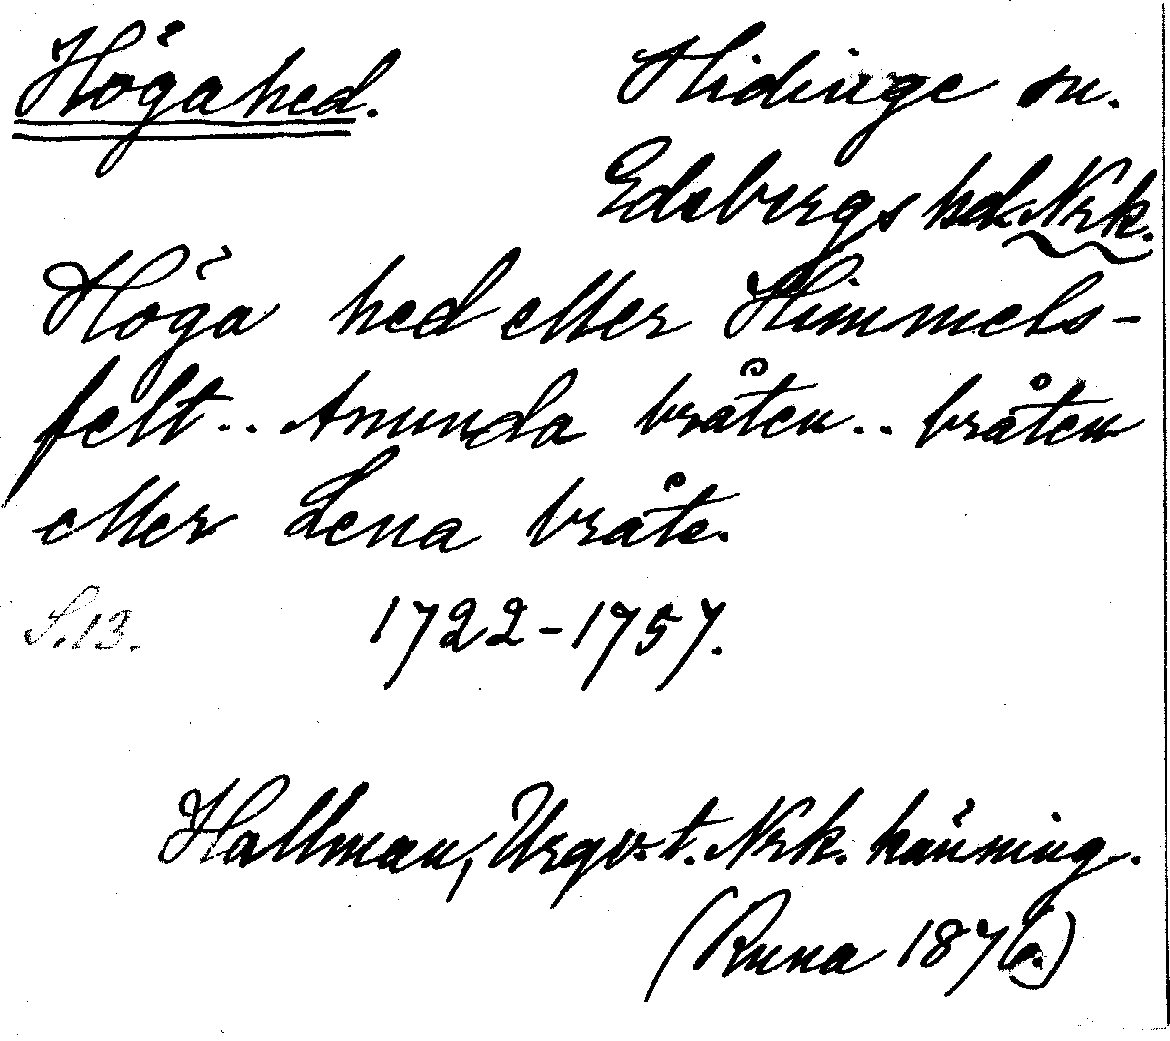 Höga hed. Hidinge sn.
Edsbergs hd. Nrk.
Höga hed eller Himmels-
felt.. Amunda bråten.. bråten
eller Lena bråte.
S. 13. 1722-1757.
Hallman, Urgv. t. Nrk. känning.
(Runa 1876.)